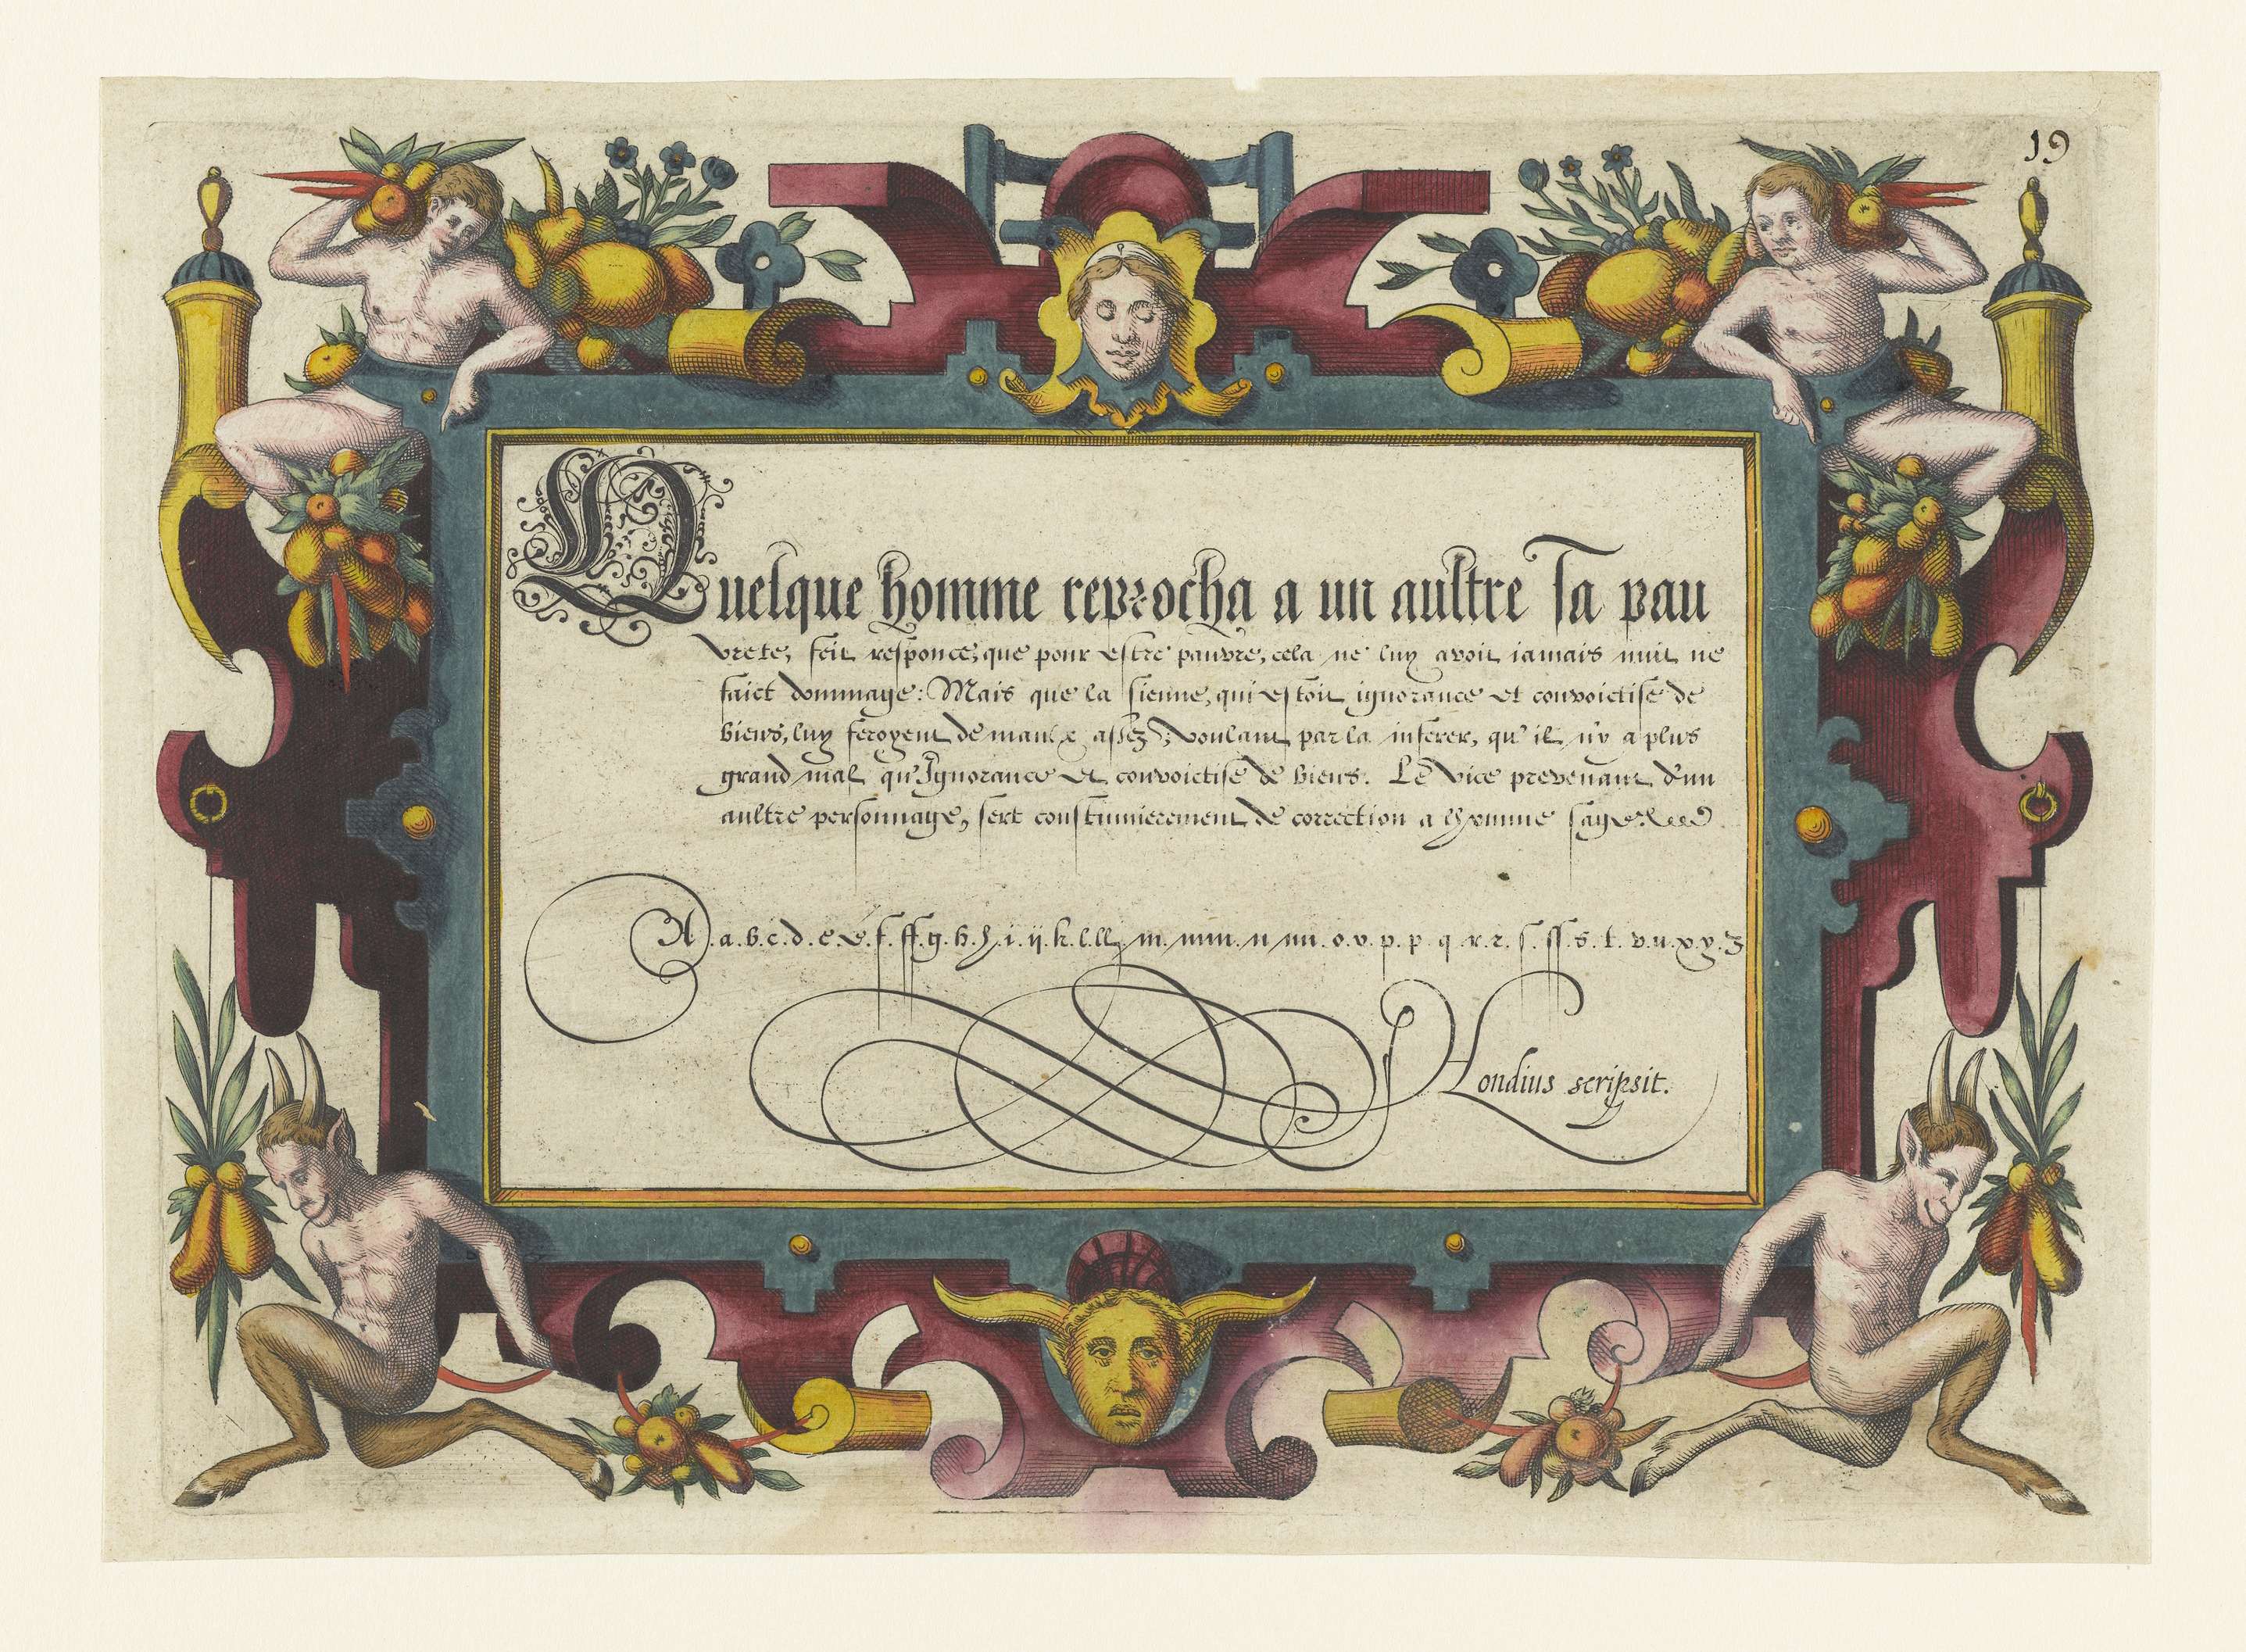 19
Quelque homme reprocha a un aultre sa pau
vrete, feit responce, que pour estre pauvre, cela ne luy avoit iamais nuit ne
faict dommage: Mais que la sienne, qui estoit ignorance et convoictise de
biens, luy feroyent de maulx assez; voulant par la inferer, qu'il n'y a plus
grand mal qu'Ignorance et convoictise de biens. Le vice prevenant d'un
aultre personnage, sert coustumierement de correction a lhomme sage.
A.a.b.c.d.e.e.f.ff.g.h.h.i.ij.k.l.ll.m.mm.n.nn.o.v.p.p.q.r.r.ſ.ſſ.s.t.v.u.x.y.z
Hondius scripsit.